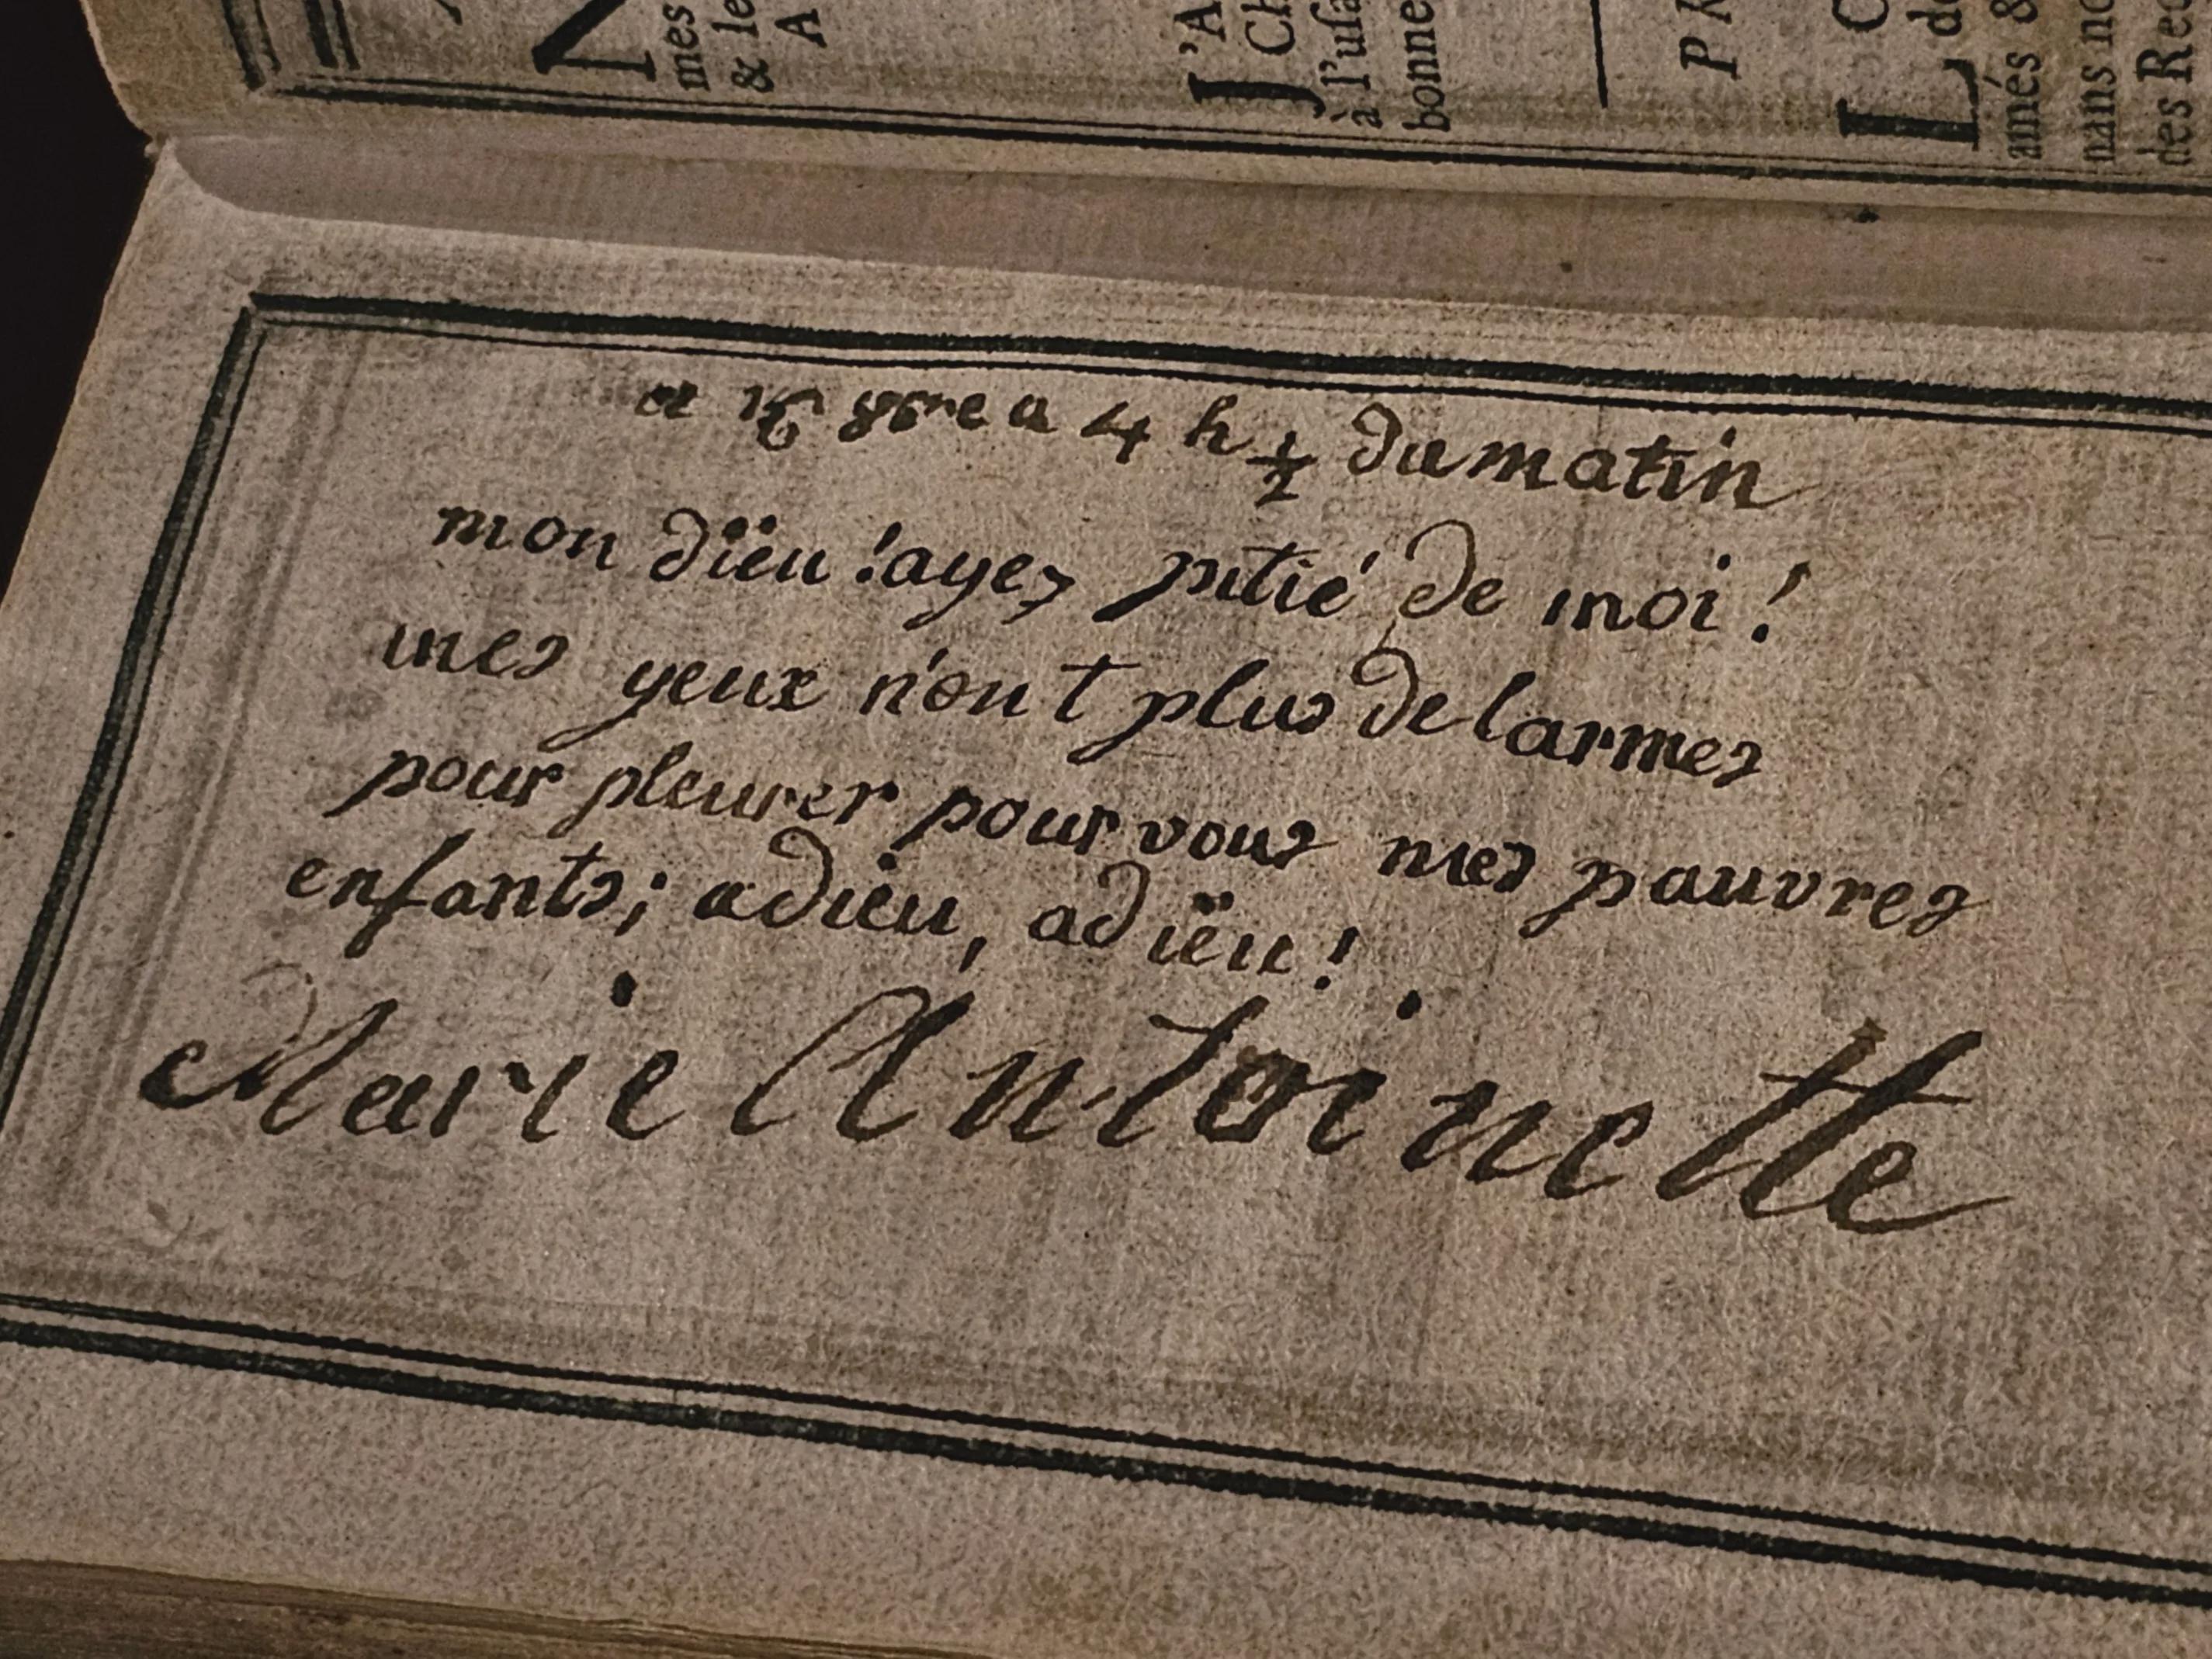 mes
& le
A
L'A
Ch
à l'uſa
bonne
PR
L
amés &
nans no
des Rec
ce 16 8bre a 4 h ½ du matin
mon dïeu ! ayez pitié de moi !
mes yeux n'ont plus de larmes
pour pleurer pour vous mes pauvres
enfants ; adieu, adïeu !
Marie Antoinette